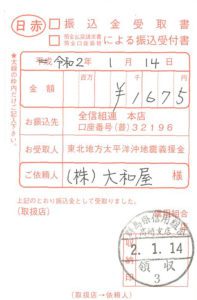 日赤 振込金受取書
預金払戻請求書
預金口座振替 による振込受付書
★太線の枠内だけご記入下さい。
平成 令和2年 1月14日
金額 百万 千 円
¥1675
お振込先 全信組連 本店
口座番号(普)32196
お受取人 東北地方太平洋沖地震義援金
ご依頼人 (株)大和屋 様
上記のとおり振込金として受取りました。
(取扱店) 信用組合
群馬県信用組合
高崎支店
2.1.14
領収
3
(取扱店→依頼人)